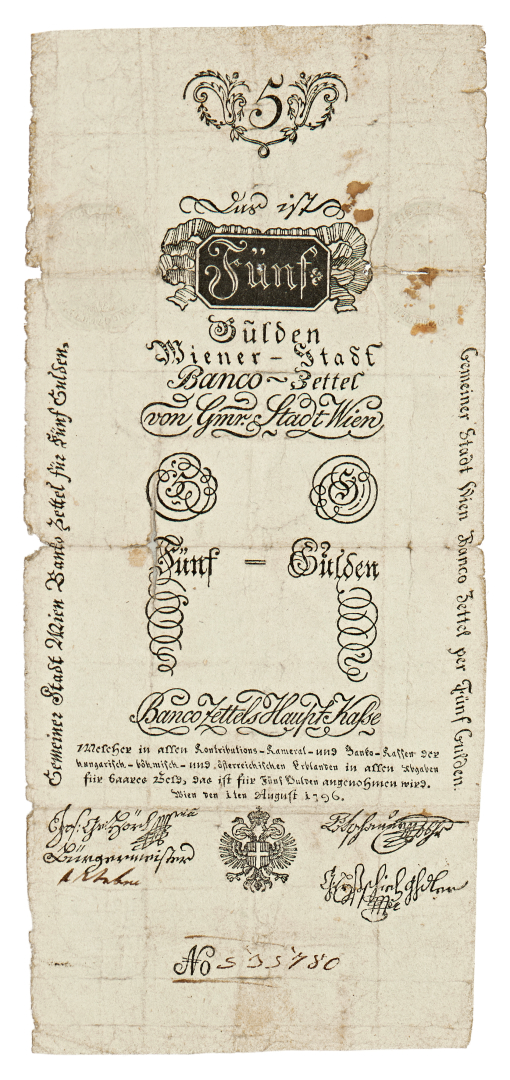 5
Das ist
Fünf
Gülden
Wiener-Stadt
Banco-Zettel
von Gmr. Stadt Wien
Fünf = Gülden
Gemeiner Stadt Wien Banko Zettel für Fünf Gulden.
Gemeiner Stadt Wien Banco Zettel per Fünf Gulden.
Banco Zettels Haupt-Kasse
Welcher in allen Kontributions-Kameral-und Banko-Kassen der
hungarisch-böhmisch-und österreichischen Erblanden in allen Abgaben
für baares Geld, das ist für Fünf Gulden angenohmen wird.
Wien den 1ten August 1796.
Bürgermeister
No 535780